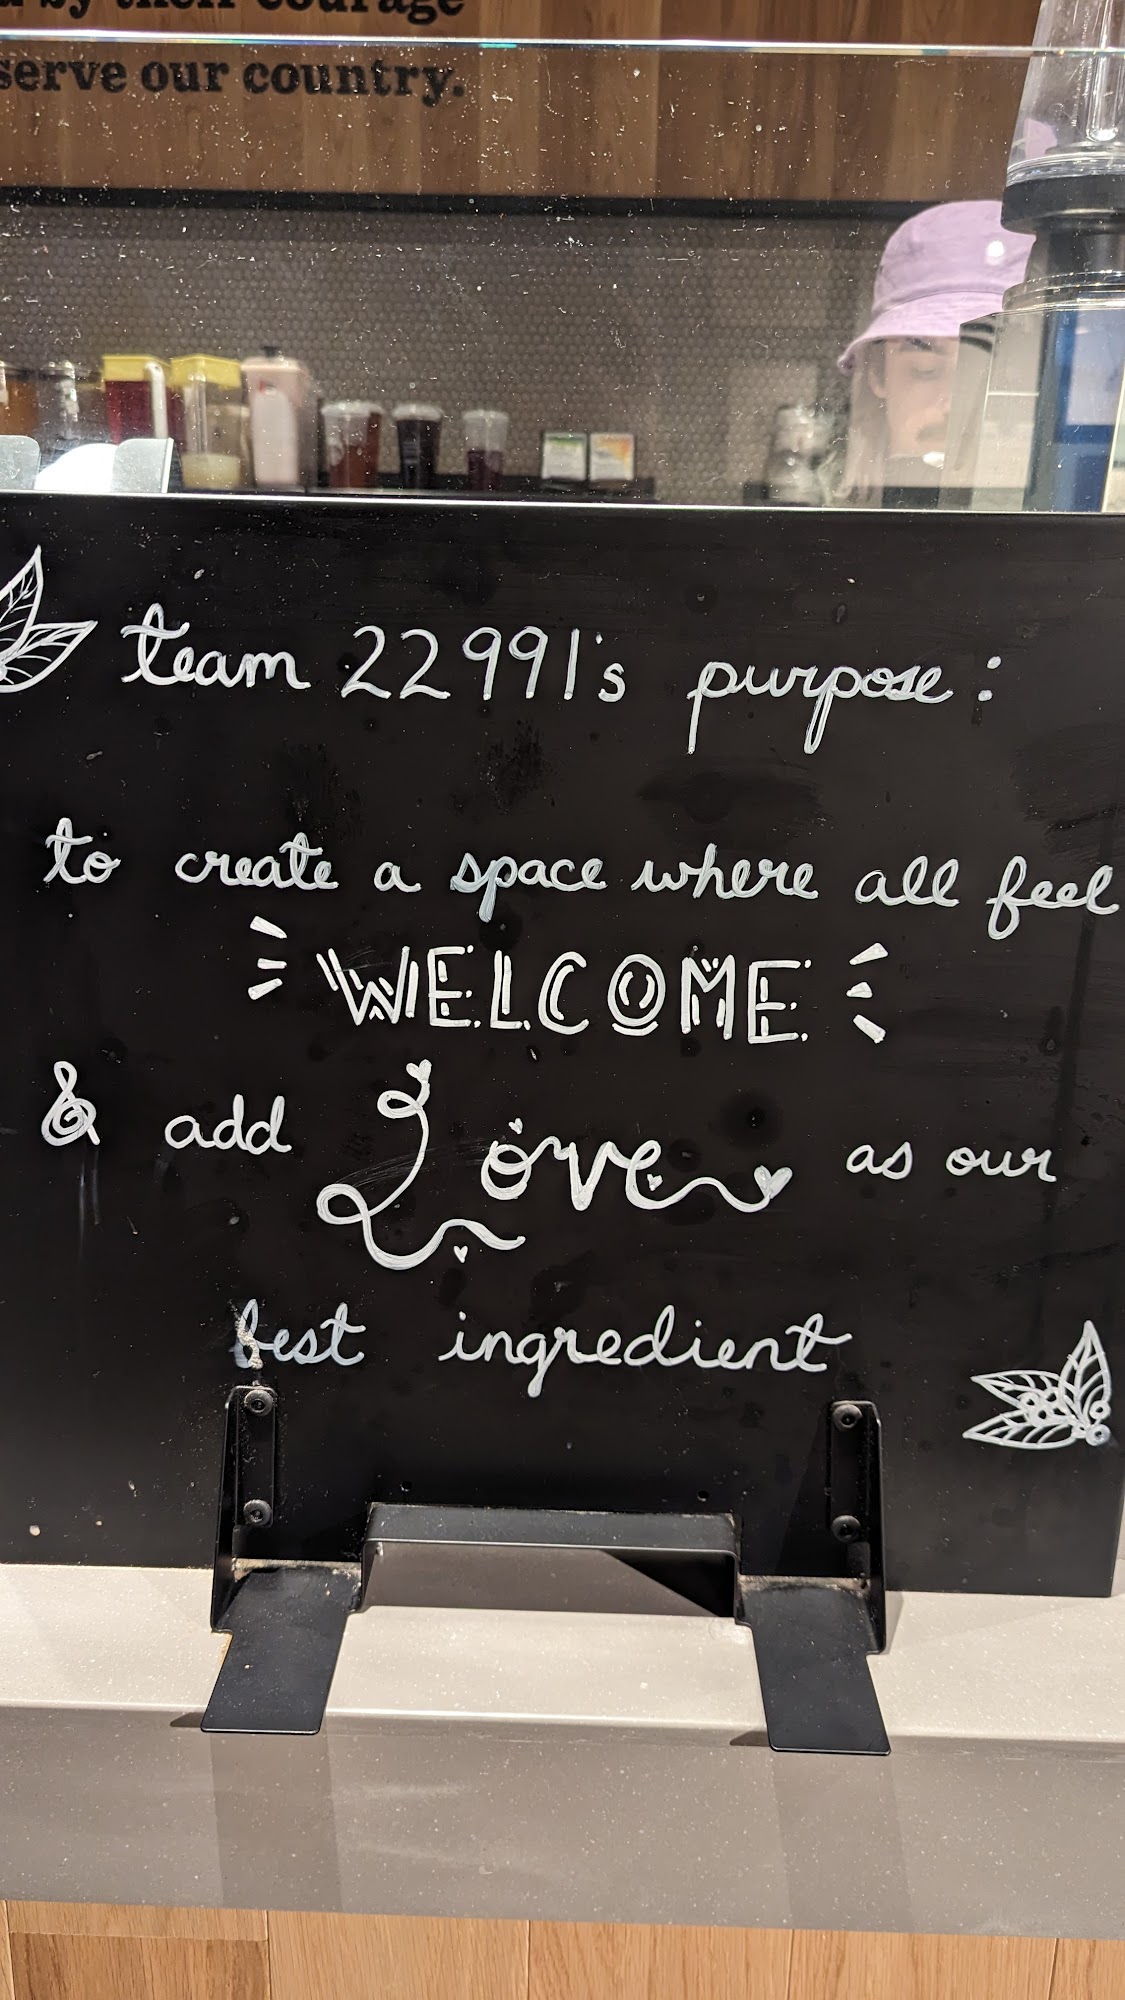 by their courage
serve our country.
team 22991's purpose:
to create a space where all feel
WELCOME
& add Love as our
best ingredient